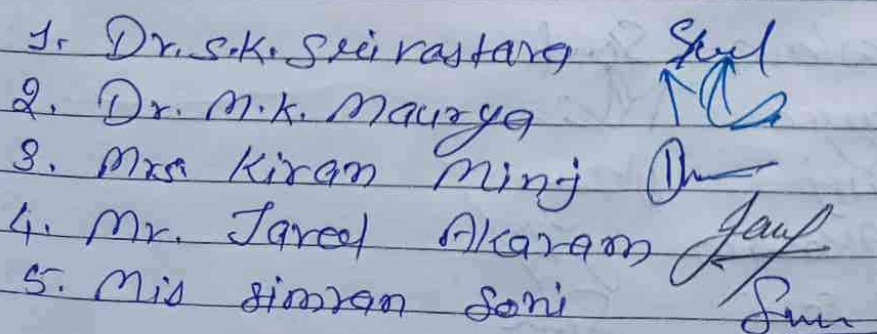 1. Dr. S.K. Srivastava
2. Dr. M.K. Maurya
3. Mrs. Kiran Minj
4. Mr. Javed Akaram
5. Mis Simran Soni